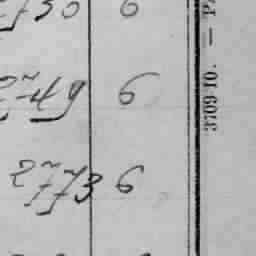 6
2749 6
2773 6
3709-10. —